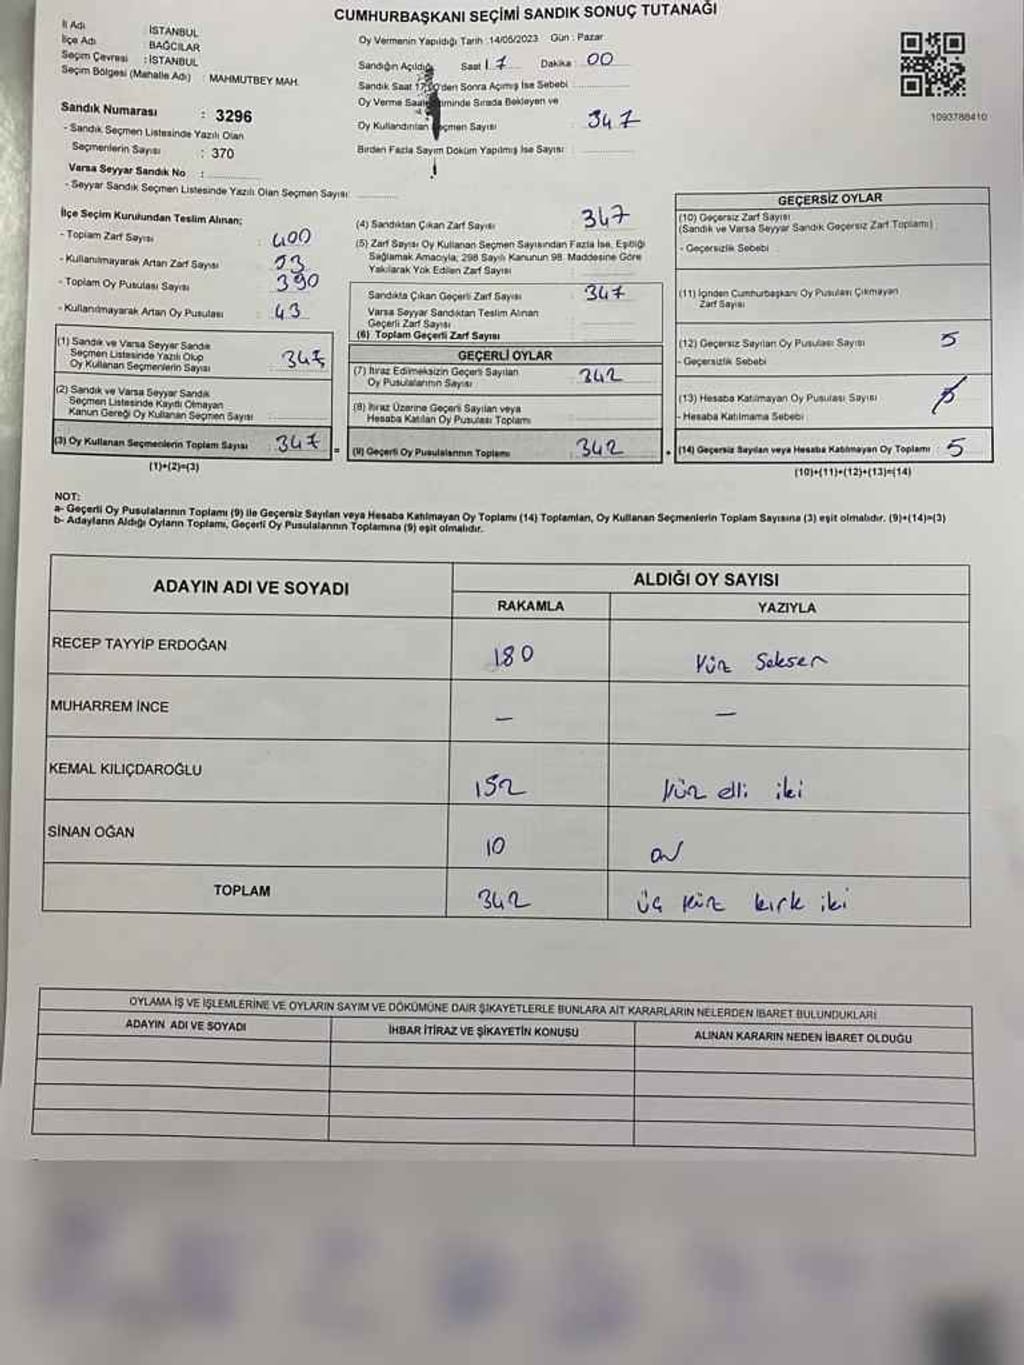 CUMHURBAŞKANI SEÇİMİ SANDIK SONUÇ TUTANAĞI
İl Adı : İSTANBUL
İlçe Adı : BAĞCILAR
Seçim Çevresi : İSTANBUL
Seçim Bölgesi (Mahalle Adı) : MAHMUTBEY MAH.
Sandık Numarası : 3296
- Sandık Seçmen Listesinde Yazılı Olan
Seçmenlerin Sayısı : 370
Varsa Seyyar Sandık No :
- Seyyar Sandık Seçmen Listesinde Yazılı Olan Seçmen Sayısı:
Oy Vermenin Yapıldığı Tarih :14/05/2023 Gün : Pazar
Sandığın Açıldığı Saat 17 Dakika : 00
Sandık Saat 17:00'den Sonra Açımış İse Sebebi :
Oy Verme Saati Bitiminde Sırada Bekleyen ve
Oy Kullandırılan Seçmen Sayısı : 347
Birden Fazla Sayım Döküm Yapılmış İse Sayısı :
1093788410
İlçe Seçim Kurulundan Teslim Alınan;
- Toplam Zarf Sayısı : 400
- Kullanılmayarak Artan Zarf Sayısı : 53
- Toplam Oy Pusulası Sayısı : 390
- Kullanılmayarak Artan Oy Pusulası : 43
(1) Sandık ve Varsa Seyyar Sandık
Seçmen Listesinde Yazılı Olup
Oy Kullanan Seçmenlerin Sayısı : 347
(2) Sandık ve Varsa Seyyar Sandık
Seçmen Listesinde Kayıtlı Olmayan
Kanun Gereği Oy Kullanan Seçmen Sayısı :
(3) Oy Kullanan Seçmenlerin Toplam Sayısı : 347 =
(1)+(2)=(3)
(4) Sandıktan Çıkan Zarf Sayısı : 347
(5) Zarf Sayısı Oy Kullanan Seçmen Sayısından Fazla İse, Eşitliği
Sağlamak Amacıyla; 298 Sayılı Kanunun 98. Maddesine Göre
Yakılarak Yok Edilen Zarf Sayısı :
Sandıkta Çıkan Geçerli Zarf Sayısı : 347
Varsa Seyyar Sandıktan Teslim Alınan
Geçerli Zarf Sayısı :
(6) Toplam Geçerli Zarf Sayısı
GEÇERLİ OYLAR
(7) İtiraz Edilmeksizin Geçerli Sayılan
Oy Pusulalarının Sayısı : 342
(8) İtiraz Üzerine Geçerli Sayılan veya
Hesaba Katılan Oy Pusulası Toplamı :
(9) Geçerli Oy Pusulalarının Toplamı : 342 +
GEÇERSİZ OYLAR
(10) Geçersiz Zarf Sayısı
(Sandık ve Varsa Seyyar Sandık Geçersiz Zarf Toplamı) :
- Geçersizlik Sebebi :
(11) İçinden Cumhurbaşkanı Oy Pusulası Çıkmayan
Zarf Sayısı :
(12) Geçersiz Sayılan Oy Pusulası Sayısı : 5
- Geçersizlik Sebebi :
(13) Hesaba Katılmayan Oy Pusulası Sayısı :
- Hesaba Katılmama Sebebi :
(14) Geçersiz Sayılan veya Hesaba Katılmayan Oy Toplamı : 5
(10)+(11)+(12)+(13)=(14)
NOT:
a- Geçerli Oy Pusulalarının Toplamı (9) ile Geçersiz Sayılan veya Hesaba Katılmayan Oy Toplamı (14) Toplamları, Oy Kullanan Seçmenlerin Toplam Sayısına (3) eşit olmalıdır. (9)+(14)=(3)
b- Adayların Aldığı Oyların Toplamı, Geçerli Oy Pusulalarının Toplamına (9) eşit olmalıdır.
ADAYIN ADI VE SOYADI
ALDIĞI OY SAYISI
RAKAMLA YAZIYLA
RECEP TAYYİP ERDOĞAN 180 Yüz Seksen
MUHARREM İNCE — —
KEMAL KILIÇDAROĞLU 152 Yüz elli iki
SİNAN OĞAN 10 on
TOPLAM 342 üç yüz kırk iki
OYLAMA İŞ VE İŞLEMLERİNE VE OYLARIN SAYIM VE DÖKÜMÜNE DAİR ŞİKAYETLERLE BUNLARA AİT KARARLARIN NELERDEN İBARET BULUNDUKLARI
ADAYIN ADI VE SOYADI İHBAR İTİRAZ VE ŞİKAYETİN KONUSU ALINAN KARARIN NEDEN İBARET OLDUĞU